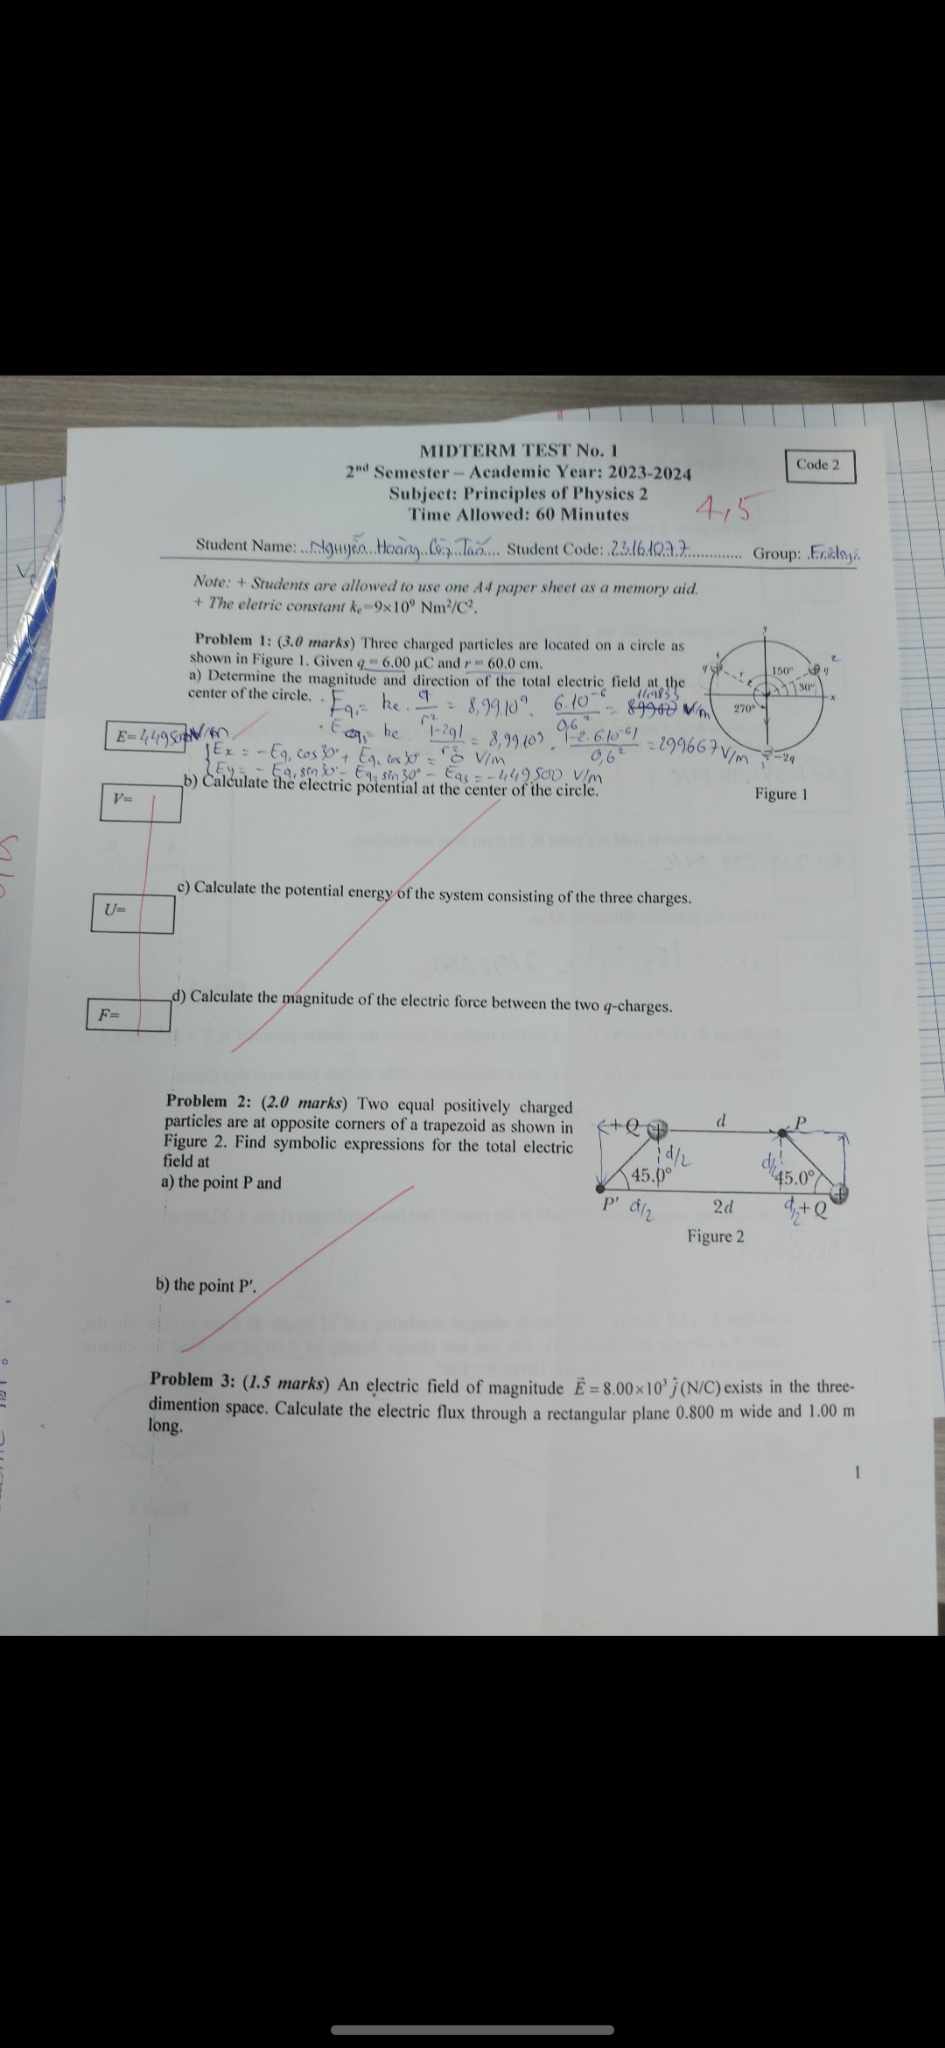 MIDTERM TEST No. 1
Code 2
2nd Semester – Academic Year: 2023-2024
Subject: Principles of Physics 2
Time Allowed: 60 Minutes
4,5
Student Name: ..Nguyễn..Hoàng.......Tấn.... Student Code: .2316.10.7.7............. Group:
Note: + Students are allowed to use one A4 paper sheet as a memory aid.
+ The eletric constant ke=9×10⁹ Nm²/C².
Problem 1: (3.0 marks) Three charged particles are located on a circle as
shown in Figure 1. Given q = 6.00 μC and r = 60.0 cm.
a) Determine the magnitude and direction of the total electric field at the
center of the circle.
Eq₁ = ke . q/r² = 8,99.10⁹ . 6.10⁻⁶/0,6² = V/m
ke |-2q|/r² = 8,99.10⁹ . |-2.6.10⁻⁶|/0,6² = 299667 V/m
E= 449500 V/m
Ex = - Eq₁ cos 30° + Eq₂ cos 30° = 0 V/m
Ey = - Eq₁ sin 30° - Eq₂ sin 30° - Eq₃ = - 449500 V/m
y
q
r
150°
30°
x
270°
2
q
-2q
Figure 1
b) Calculate the electric potential at the center of the circle.
V=
c) Calculate the potential energy of the system consisting of the three charges.
U=
d) Calculate the magnitude of the electric force between the two q-charges.
F=
Problem 2: (2.0 marks) Two equal positively charged
particles are at opposite corners of a trapezoid as shown in
Figure 2. Find symbolic expressions for the total electric
field at
a) the point P and
+Q
d
P
d/2
d/2
45.0°
45.0°
P'
d/2
2d
d/2
+Q
Figure 2
b) the point P'.
Problem 3: (1.5 marks) An electric field of magnitude E⃗ = 8.00×10³ ĵ (N/C) exists in the three-
dimention space. Calculate the electric flux through a rectangular plane 0.800 m wide and 1.00 m
long.
1